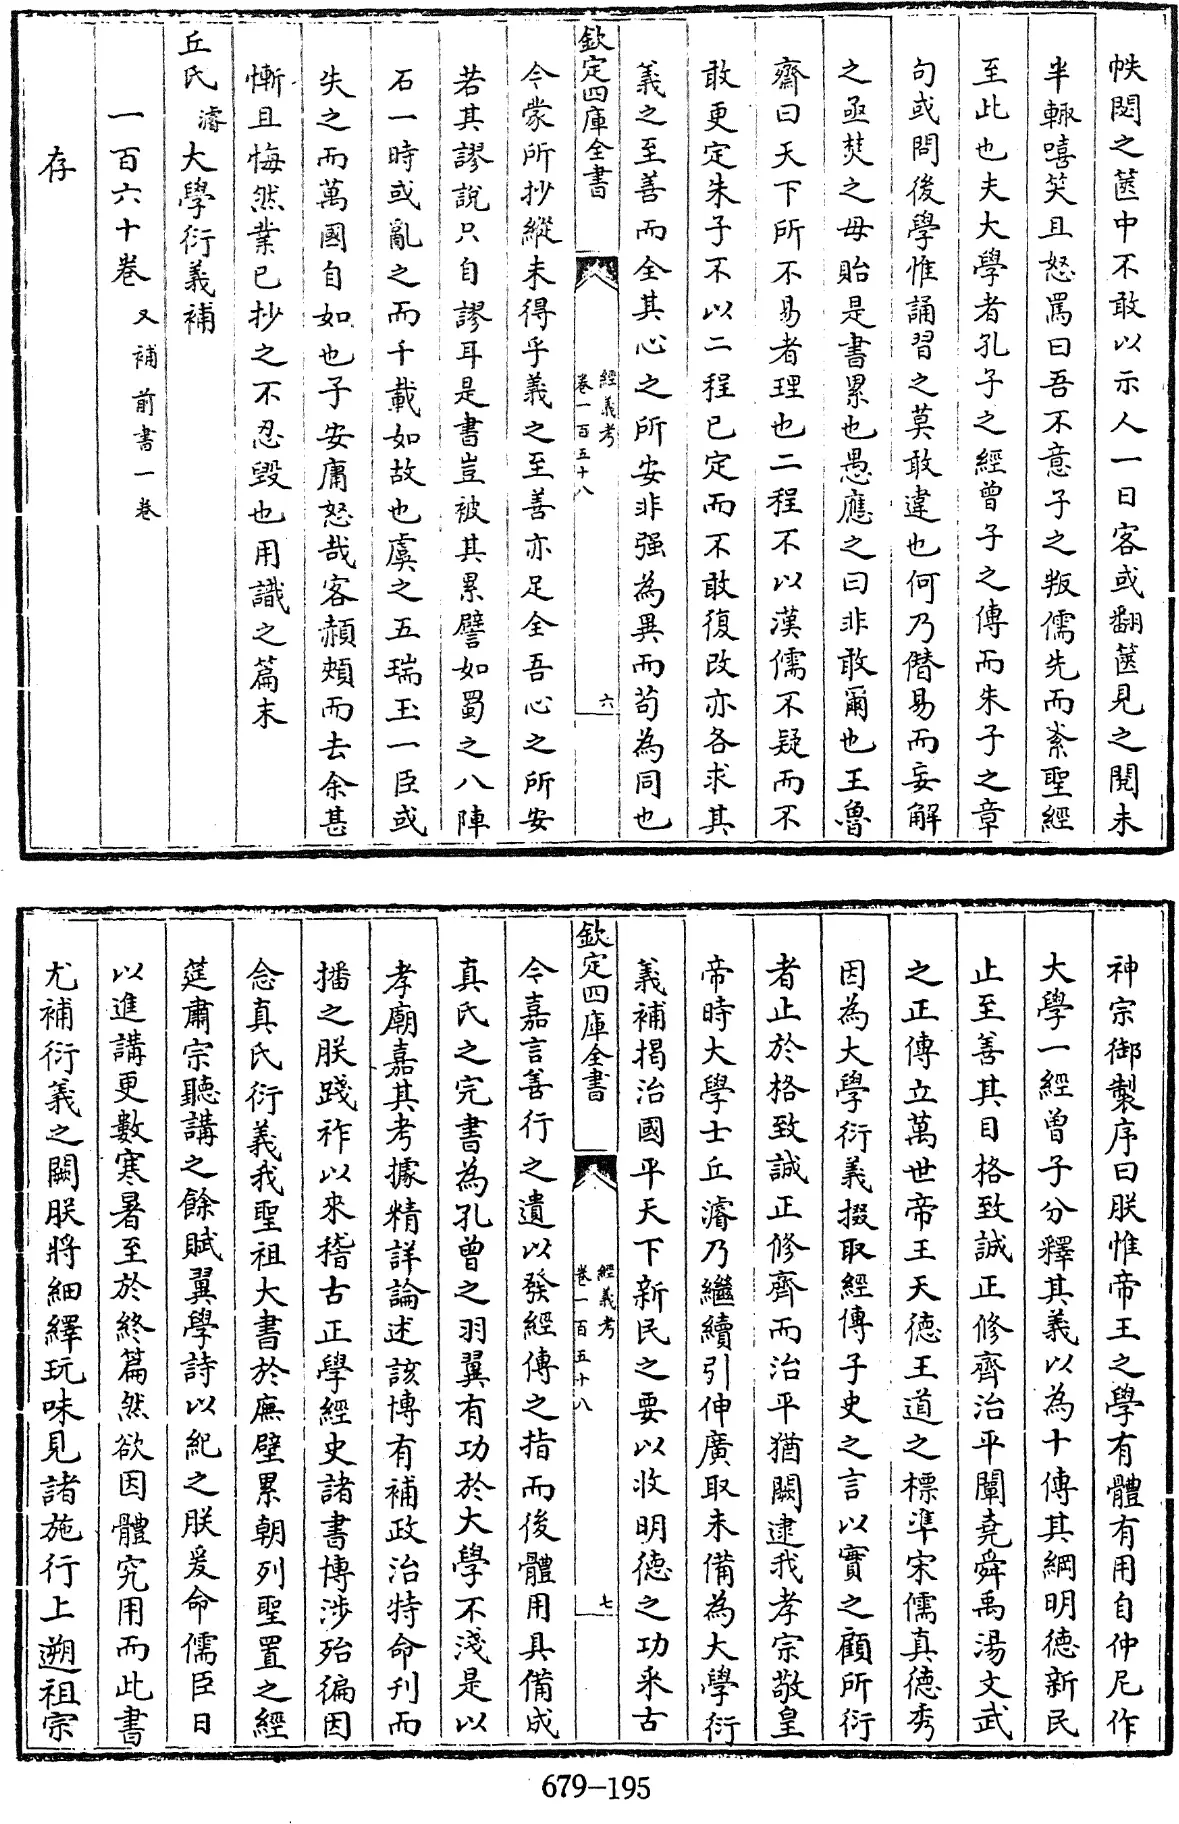 帙閟之篋中不敢以示人一日客或翻篋見之閱未
半輒嘻笑且怒罵曰吾不意子之叛儒先而紊聖經
至此也夫大學者孔子之經曾子之傳而朱子之章
句或問後學惟誦習之莫敢違也何乃僭易而妄解
之亟焚之毋貽是書累也愚應之曰非敢爾也王魯
齋曰天下所不易者理也二程不以漢儒不疑而不
敢更定朱子不以二程已定而不敢復改亦各求其
義之至善而全其心之所安非强為異而苟為同也
欽定四庫全書
經義考
卷一百五十八
六
今蒙所抄縱未得乎義之至善亦足全吾心之所安
若其謬說只自謬耳是書豈被其累譬如蜀之八陣
石一時或亂之而千載如故也虞之五瑞玉一臣或
失之而萬國自如也子安庸怒哉客頳頰而去余甚
慚且悔然業已抄之不忍毀也用識之篇末
丘氏濬大學衍義補
一百六十卷又補前書一卷
存
神宗御製序曰朕惟帝王之學有體有用自仲尼作
大學一經曾子分釋其義以為十傳其綱明德新民
止至善其目格致誠正修齊治平闡堯舜禹湯文武
之正傳立萬世帝王天德王道之標準宋儒真德秀
因為大學衍義掇取經傳子史之言以實之顧所衍
者止於格致誠正修齊而治平猶闕逮我孝宗敬皇
帝時大學士丘濬乃繼續引伸廣取未備為大學衍
義補揭治國平天下新民之要以收明德之功采古
欽定四庫全書
經義考
卷一百五十八
七
今嘉言善行之遺以發經傳之指而後體用具備成
真氏之完書為孔曾之羽翼有功於大學不淺是以
孝廟嘉其考據精詳論述該博有補政治特命刊而
播之朕踐祚以來稽古正學經史諸書博涉殆徧因
念真氏衍義我聖祖大書於廡壁累朝列聖置之經
筵肅宗聽講之餘賦翼學詩以紀之朕爰命儒臣日
以進講更數寒暑至於終篇然欲因體究用而此書
尤補衍義之闕朕將細繹玩味見諸施行上遡祖宗
679-195